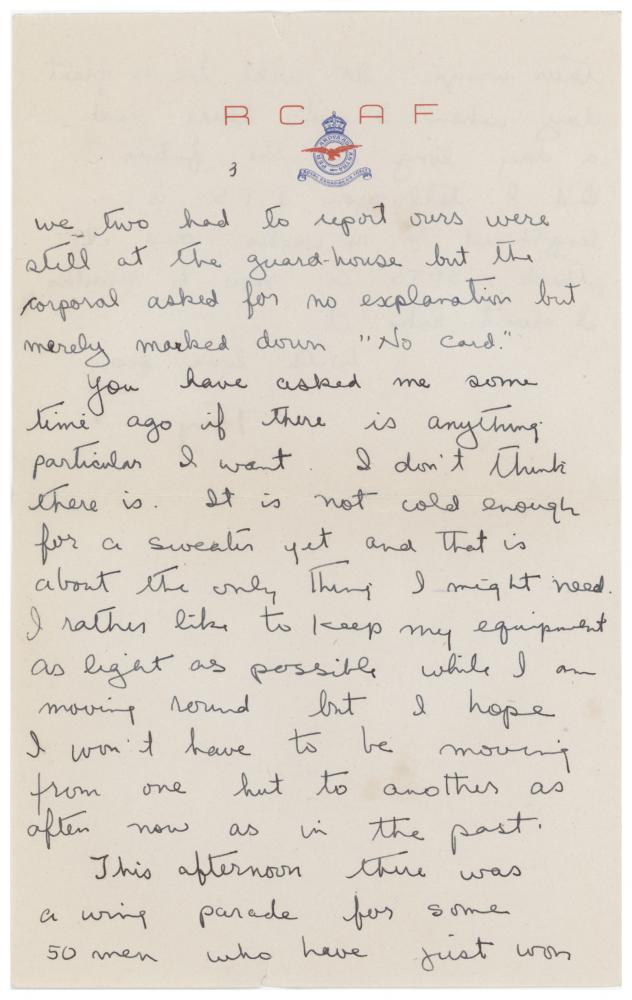 R C A F
PER ARDUA AD ASTRA
ROYAL CANADIAN AIR FORCE
3
we two had to report ours were
still at the guard-house but the
corporal asked for no explanation but
merely marked down "No card."
You have asked me some
time ago if there is anything
particular I want. I don't think
there is. It is not cold enough
for a sweater yet and that is
about the only thing I might need.
I rather like to keep my equipment
as light as possible while I am
moving round but I hope
I won't have to be moving
from one hut to another as
often now as in the past.
This afternoon there was
a wing parade for some
50 men who have just won